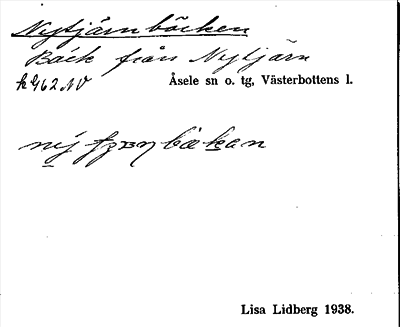 Nytjärnbäcken
Bäck från Nytjärn
k 962 NV Åsele sn o. tg, Västerbottens l.
Lisa Lidberg 1938.